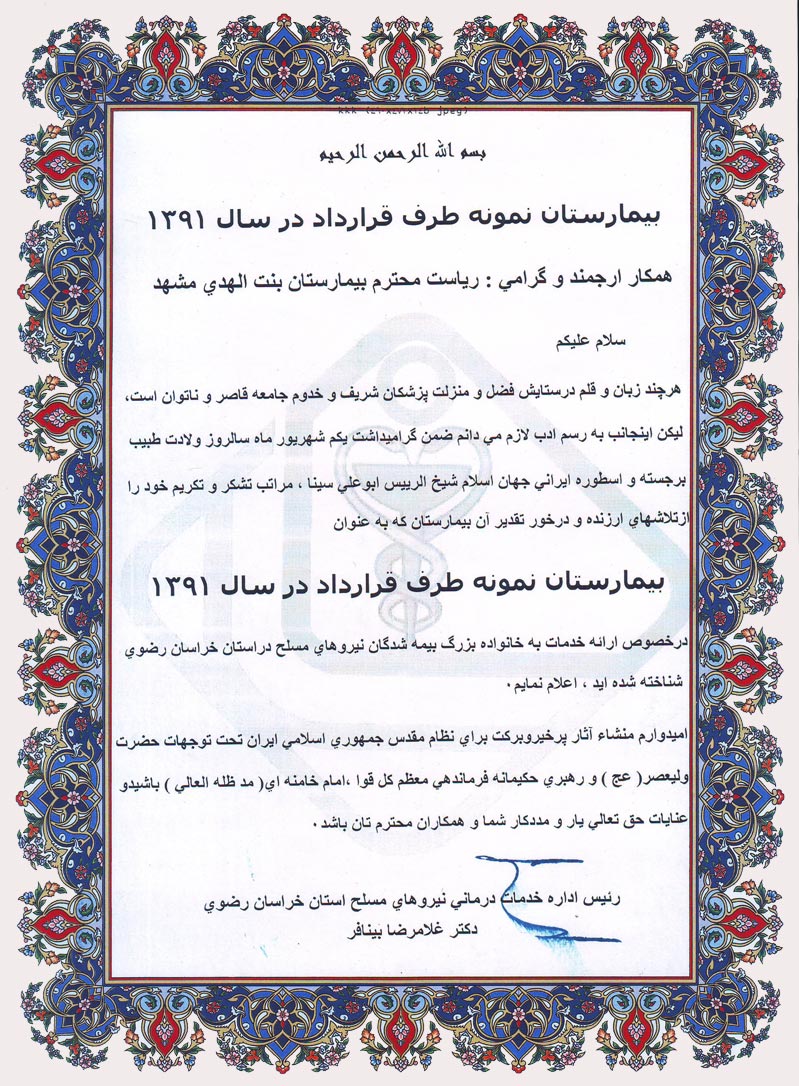 بسم الله الرحمن الرحیم
بیمارستان نمونه طرف قرارداد در سال ۱۳۹۱
همکار ارجمند و گرامي : ریاست محترم بیمارستان بنت الهدي مشهد
سلام علیکم
هرچند زبان و قلم درستایش فضل و منزلت پزشکان شریف و خدوم جامعه قاصر و ناتوان است،
لیکن اینجانب به رسم ادب لازم مي دانم ضمن گرامیداشت یکم شهریور ماه سالروز ولادت طبیب
برجسته و اسطوره ایراني جهان اسلام شیخ الرییس ابوعلي سینا ، مراتب تشکر و تکریم خود را
ازتلاشهاي ارزنده و درخور تقدیر آن بیمارستان که به عنوان
بیمارستان نمونه طرف قرارداد در سال ۱۳۹۱
درخصوص ارائه خدمات به خانواده بزرگ بیمه شدگان نیروهاي مسلح دراستان خراسان رضوي
شناخته شده اید ، اعلام نمایم ۰
امیدوارم منشاء آثار پرخیروبرکت براي نظام مقدس جمهوري اسلامي ایران تحت توجهات حضرت
ولیعصر( عج ) و رهبري حکیمانه فرماندهي معظم کل قوا ،امام خامنه اي( مد ظله العالي ) باشیدو
عنایات حق تعالي یار و مددکار شما و همکاران محترم تان باشد ۰
رئیس اداره خدمات درماني نیروهاي مسلح استان خراسان رضوي
دکتر غلامرضا بینافر